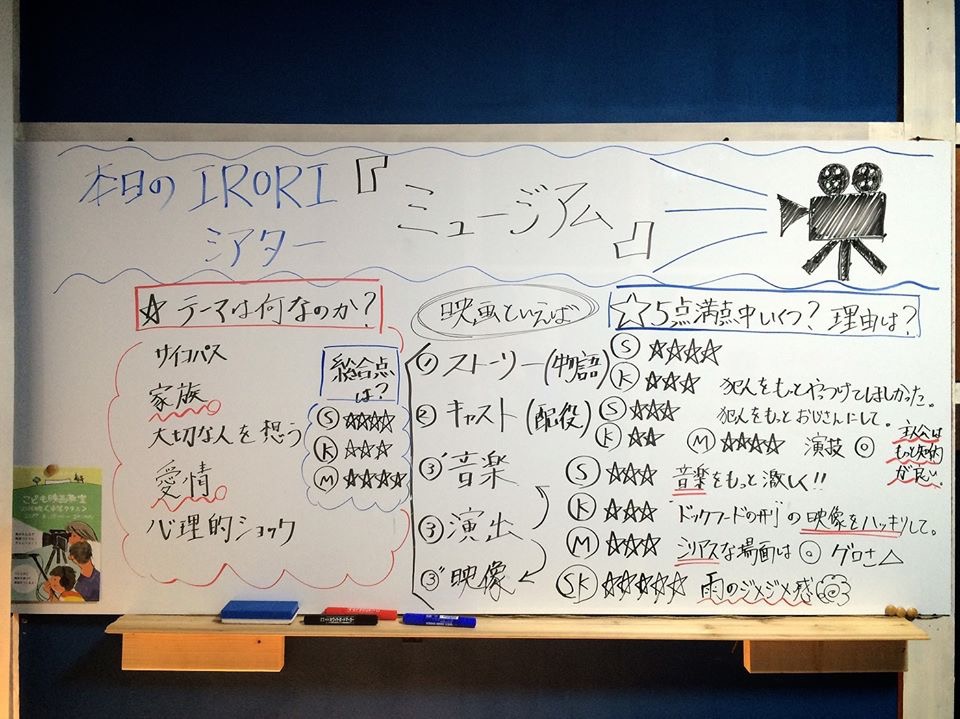 本日の IRORI
シアター
『ミュージアム』
☆ テーマは何なのか?
サイコパス
家族
大切な人を想う
愛情
心理的ショック
総合点
は?
Ⓢ ☆☆☆☆
Ⓚ ☆☆☆
Ⓜ ☆☆☆☆
映画といえば
① ストーリー(物語)
② キャスト(配役)
③' 音楽
③ 演出
③'' 映像
☆5点満点中いくつ? 理由は?
Ⓢ ☆☆☆☆
Ⓚ ☆☆☆ 犯人をもっとやっつけてほしかった。
Ⓢ ☆☆☆ 犯人をもっとおじさんにして。
Ⓚ ☆☆ Ⓜ ☆☆☆☆ 演技 ◎
主人公は
もっと知的
が良い。
Ⓢ ☆☆☆ 音楽をもっと激しく!!
Ⓚ ☆☆☆ ドックフードの刑の映像をハッキリして。
Ⓜ ☆☆☆ シリアスな場面は ◎ グロさ△
SK ☆☆☆☆☆ 雨のジメジメ感
こども映画教室